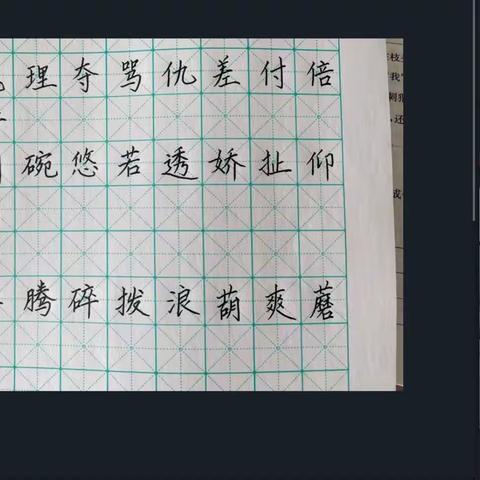 理夺骂仇差付倍
碗悠若透娇扯仰
腾碎拨浪葫爽蘑